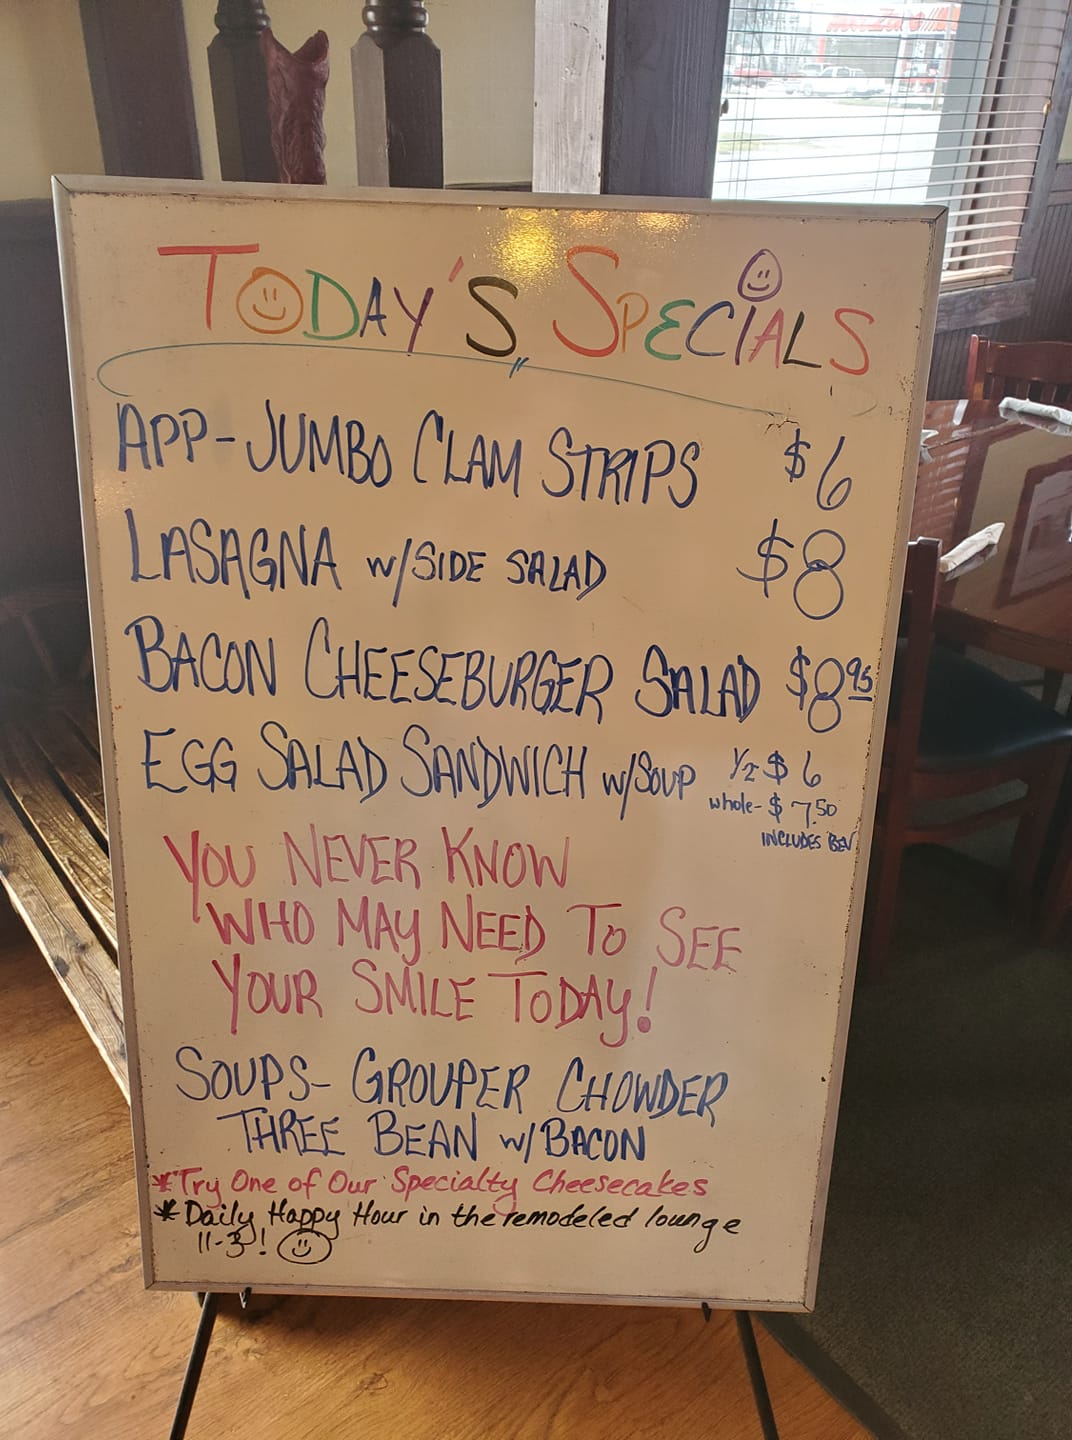 TODAY'S SPECIALS
APP-JUMBO CLAM STRIPS $6
LASAGNA w/SIDE SALAD $8
BACON CHEESEBURGER SALAD $8.95
EGG SALAD SANDWICH w/SOUP 1/2 $6
whole- $7.50
INCLUDES BEV
YOU NEVER KNOW
WHO MAY NEED TO SEE
YOUR SMILE TODAY!
SOUPS- GROUPER CHOWDER
THREE BEAN w/BACON
*Try One of Our Specialty Cheesecakes
*Daily Happy Hour in the remodeled lounge
11-3!